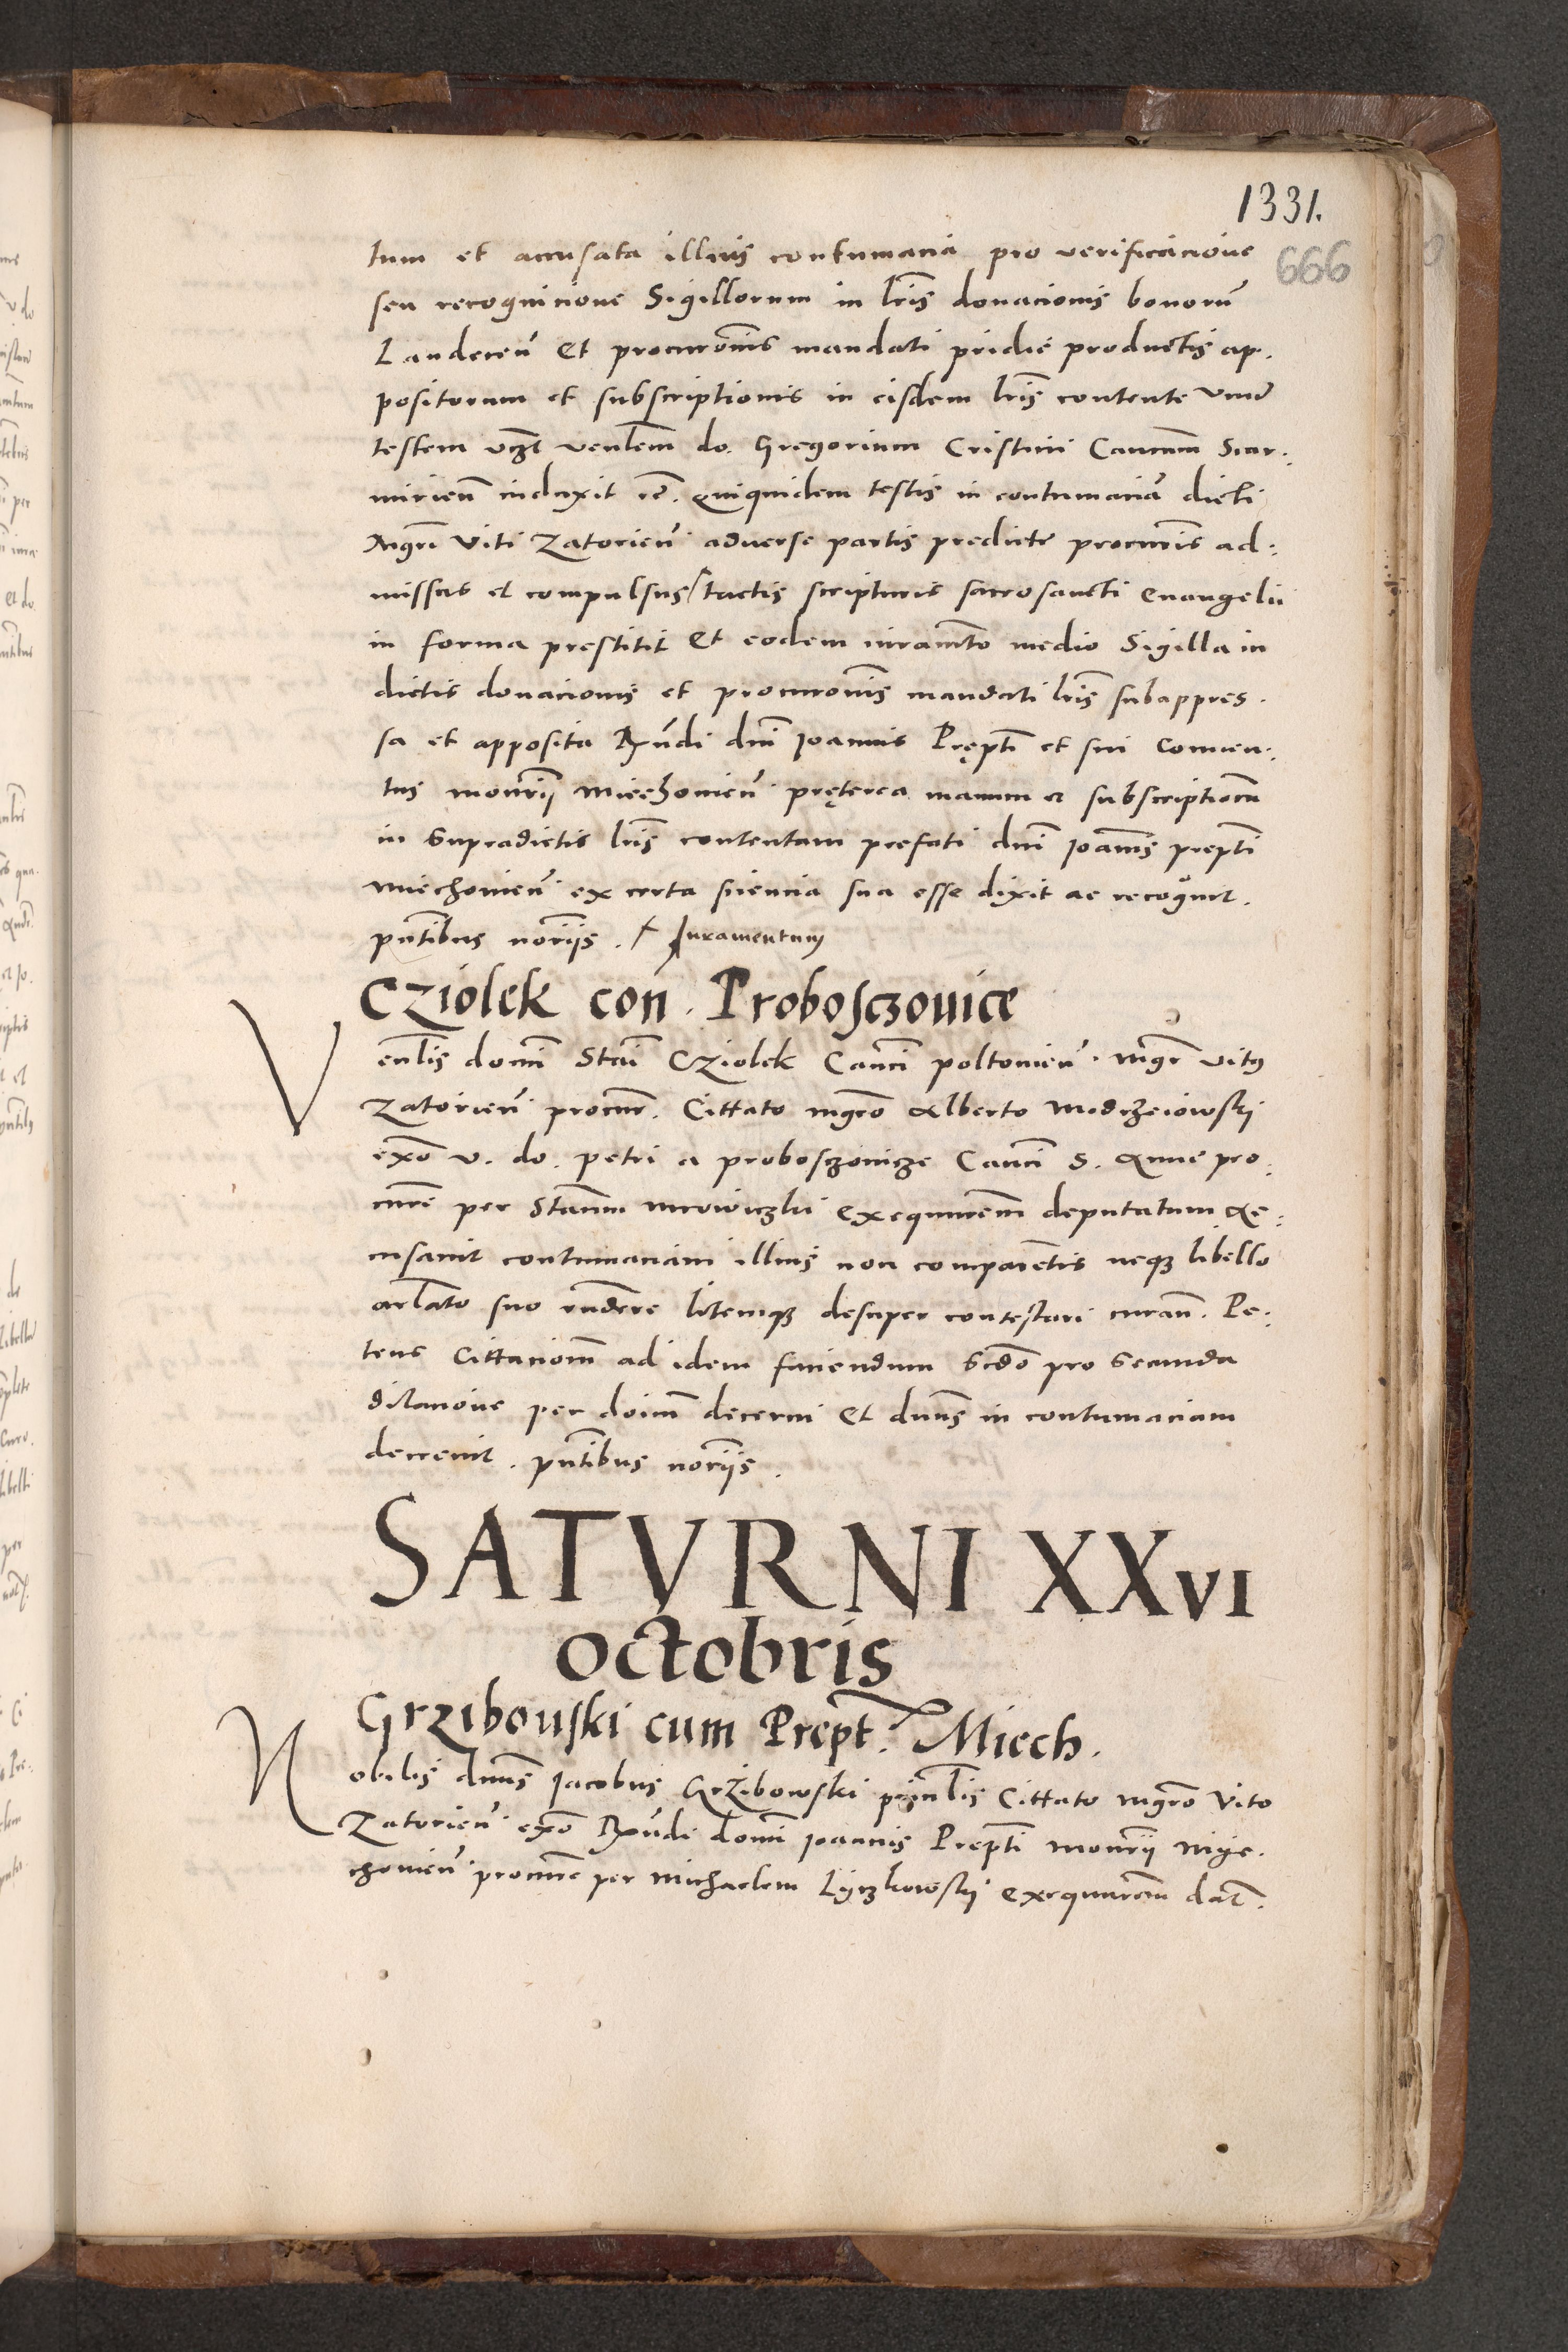 1331.
666
tum et accusata illius contumacia pro verificacione
seu recognicione Sigillorum in lris donacionis bonorū
Landecen̄ et procurōnis mandati pridie productis ap.
positorum et subscriptionis in eisdem lris contente Vnū
testem vcꝫt venlem do. Gregorium Cristini Canicum Scar:
mirien̄ induxit rc̄. Quiquidem testis in contumaciā dicti
Mgri Viti Zatorien̄ adverse partis predicte procuris ad:
missus et compulsus / tactis scripturis sacrosancti Evangelii
in forma prestitit Et eodem iuramto medio Sigilla in
dictis donacionis et procuronis mandati lris subappres.
sa et apposita Rndi dni Joannis Prepti et sui Conven:
tus monrii Miechovien̄ preterea manum et subscriptiocm
in Supradictis lris contentam prefati dni Joannis prepti
Miechovien̄ ex certa sciencia sua esse dixit ac recognvit.
pntibus noriis. / Juramentum
Cziolek con. Proboſczovice
Venlis domi Stai Cziolek Canci poltovien̄. Mgr Vitus
Zatorien̄ procur. Cittato mgro Alberto Modrzeiowski
exo v. do. Petri a proboſczovicze Canci S. Anne pro:
cure per Stanm Mrowiczki Exequutem deputatum Ac:
cusavit contumaciam illius non comparentis neqꝫ libello
arlato suo rndere litemqꝫ desuper contestari curan̄. Pe:
tens Cittaciom ad idem faciendum Scdo pro Secunda
dilacione per doim decerni Et dnus in contumaciam
decrevit. pntibus noriis.
SATVRNI XXVI
octobris
Grzibouski cum Prept. Miech.
Nobilis dnus Jacobus Grzibowski prinlis Cittato mgro Vito
Zatorien̄ exo Rndi domi Joannis Prepti monrii Mye.
chovien̄ procure per Michaelem Lyczkowski Exequutem dat.